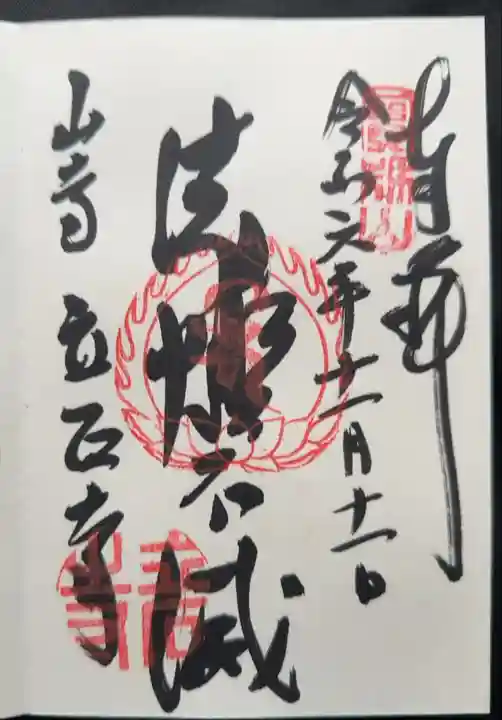 奉拝
令和元年十一月十一日
法燈不滅
山寺 立石寺